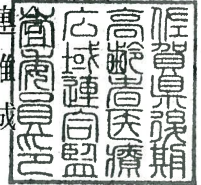 佐賀県後期
高齢者医療
広域連合監
査委員印